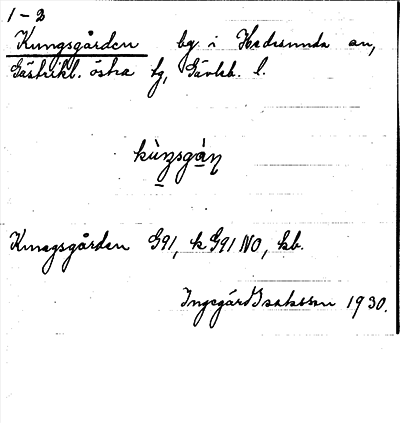 1-2
Kungsgården by i Hedesunda sn,
Gästrikl. östra tg, Gävleb. l.
kùŋsgàṇ
Kungsgården G91, k G91 NO, kb.
Ingegärd Isaksson 1930.